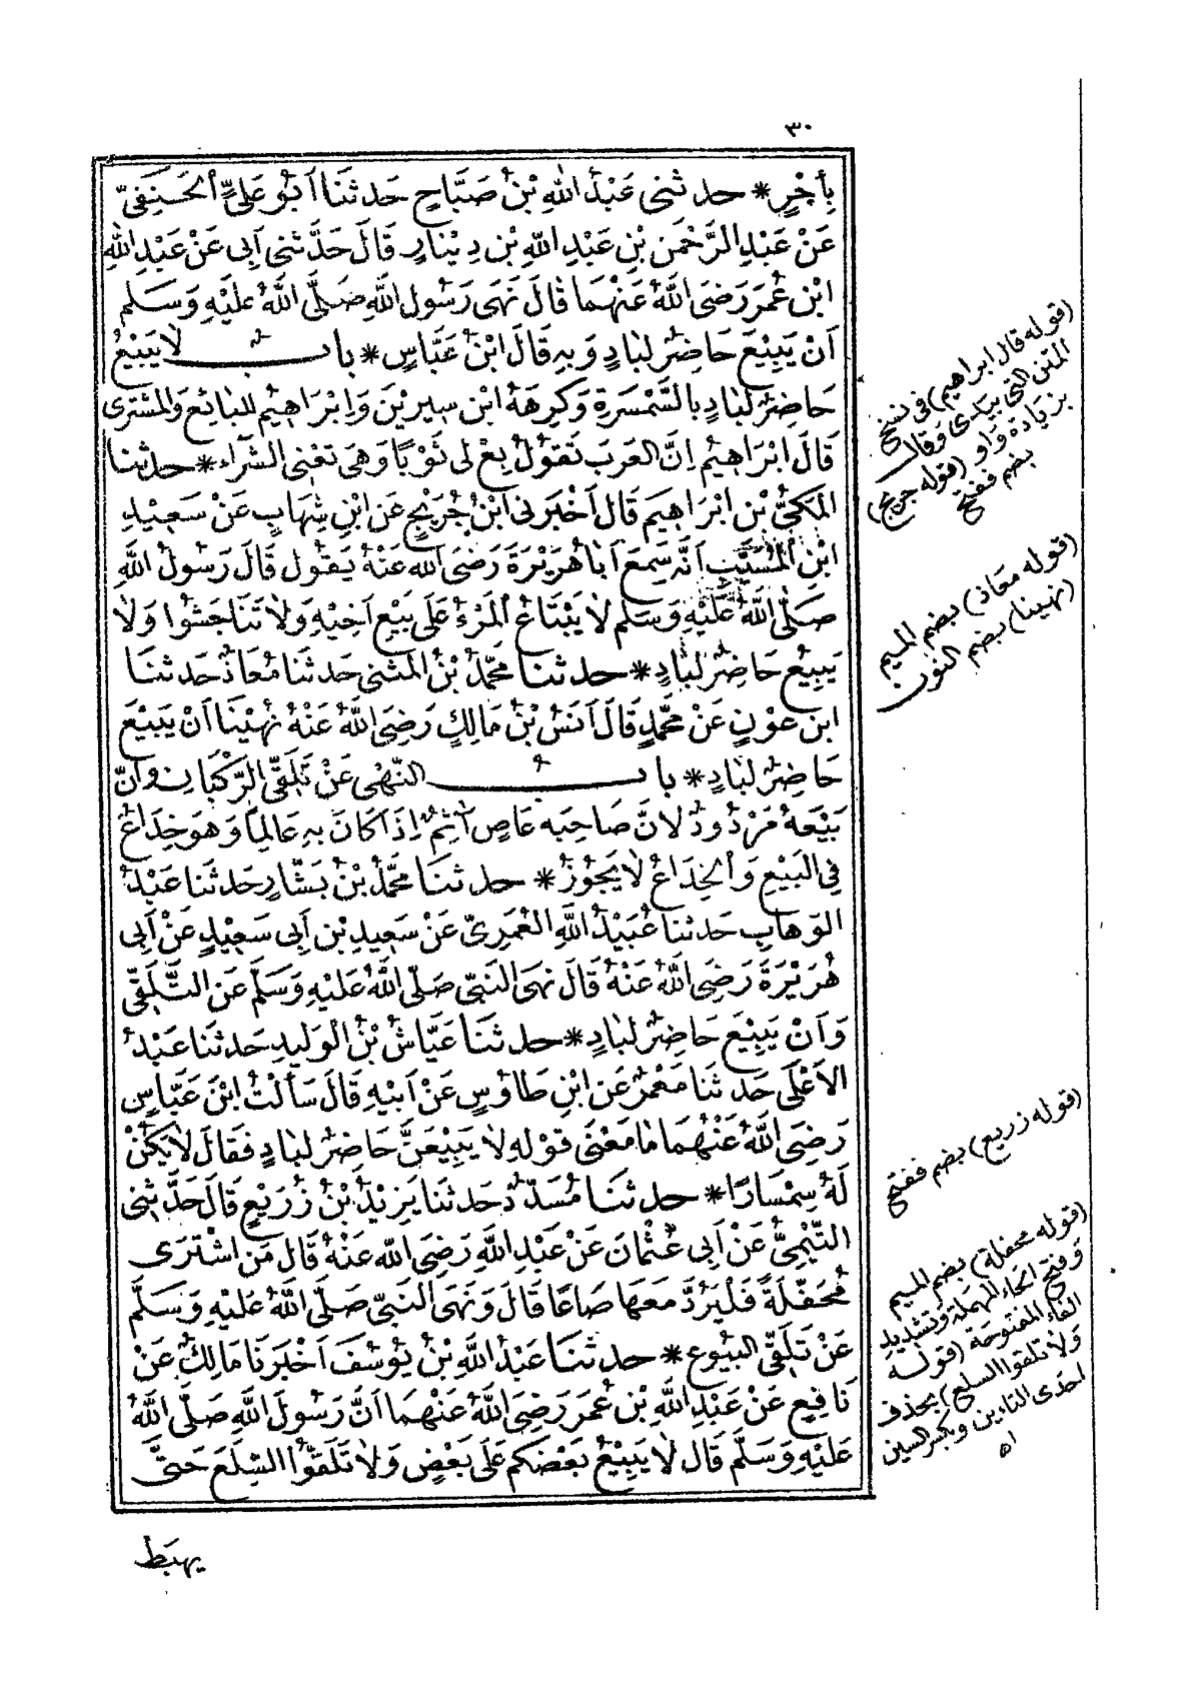 ٣٠
بِأَجْرٍ * حدثنى عَبْدُ اللهِ بْنُ صَبَّاحٍ حَدثَنَا أَبُو عَلِىٍّ الْحَنَفِىّ
عَنْ عَبْدِ الرَّحْمَنِ بْنِ عَبْدِ اللهِ بْنِ دِينَارٍ قَالَ حَدَّثنى أَبِى عَنْ عَبْدِ اللهِ
ابْنِ عُمَرَ رَضِىَ اللَّهُ عَنْهُمَا قَالَ نَهَى رَسُولُ اللَّهِ صَلَّى اللَّهُ عَلَيْهِ وَسَلم
أَنْ يَبِيْعَ حَاضِرٌ لِبَادٍ وَبِهِ قَالَ ابْنُ عَبَّاسٍ * باب لا يَبِيْعُ
حَاضِرٌ لِبَادٍ بِالسَّمْسَرَةِ وَكَرِهَهُ ابْن سِيرِيْنَ وَإِبْرَاهِيْمُ لِلبَائِعِ وَالْمُشْتَرِى
قَالَ ابْرَاهِيْمُ اِنَّ الْعَرَبَ تَقُوْلُ بِعْ لِى ثَوْبًا وَهِىَ تَعْنِى الشِّرَاء * حدثنا
الْمَكِىُّ بْنُ ابْرَاهِيمَ قَالَ أَخْبَرَنِى ابْنُ جُرَيْجٍ عَنِ ابْنِ شِهَابٍ عَنْ سَعِيْدِ
ابْنِ الْمُسَيَّبِ اَنَّهُ سَمِعَ أَبَا هُرَيْرَةَ رَضِىَ اللهُ عَنْهُ يَقُولُ قَالَ رَسُولُ اللَّهِ
صَلَّى اللَّهُ عَلَيْهِ وَسَلم لاَ يَبْتَاعُ الْمَرْءُ عَلَى بَيْعِ اَخِيْهِ وَلاَ تَنَاجَشُوا وَلاَ
يَبِيْعُ حَاضِرٌ لِبَادٍ * حدثنا محمَّدُ بْنُ الْمُثَنى حَدثنَا مُعَاذٌ حَدثنَا
ابن عوْنٍ عَنْ محمَّدٍ قَالَ أَنَسُ بْنُ مَالِكٍ رَضِىَ اللَّهُ عَنْهُ نُهِيْنَا أَنْ يَبِيْعَ
حَاضِرٌ لِبَادٍ * باب النَّهْىِ عَنْ تَلَقِّى الرُّكْبَانِ وَانَّ
بَيْعَهُ مَرْدُودٌ لاَنَّ صَاحِبَهُ عَاصٍ آثِمٌ اِذَا كَانَ بِهِ عَالِمًا وَهُوَ خِدَاعٌ
فِى الْبَيْعِ وَالْخِدَاعُ لاَ يَجُوْزُ * حدثنَا محمَّدُ بْنُ بَشَّارٍ حَدثنَا عَبْدُ
الْوَهابِ حَدثنا عُبَيْدُ اللَّهِ الْعُمَرِىّ عَنْ سَعِيدِ بْنِ أَبِى سَعِيْدٍ عَنْ أَبِى
هُرَيْرَةَ رَضِىَ اللَّهُ عَنْهُ قَالَ نَهَى النَّبِىّ صَلَّى اللَّهُ عَلَيْهِ وَسَلَّمَ عَنِ التَّلَقِّى
وَاَنْ يَبِيْعَ حَاضِرٌ لِبَادٍ * حدثنَا عَيَّاشُ بْنُ الْوَلِيدِ حَدثنَا عَبْدُ
الاَعْلَى حَدثنَا مَعْمَرٌ عَنِ ابْنِ طَاوُسٍ عَنْ أَبِيْهِ قَالَ سَأَلْتُ ابْنَ عَبَّاسٍ
رَضِىَ اللَّهُ عَنْهُمَا مَا مَعْنَى قَوْلِهِ لاَ يَبِيْعَنَّ حَاضِرٌ لِبَادٍ فَقَالَ لاَ يَكُنْ
لَهُ سِمْسَارًا * حدثنَا مُسَدَّدٌ حَدثنَا يَزِيْدُ بْنُ زُرَيْعٍ قَالَ حَدَّثنى
التَّيْمِىُّ عَنْ أَبِى عُثْمَانَ عَنْ عَبْدِ اللَّهِ رَضِىَ اللهُ عَنْهُ قَالَ مَنِ اشْتَرَى
مُحَفَّلَةً فَلْيَرُدَّ مَعَهَا صَاعًا قَالَ وَنَهَى النَّبِىّ صَلَّى اللَّهُ عَلَيْهِ وَسَلَّم
عَنْ تَلَقِّى الْبُيُوعِ * حدثنَا عَبْدُ اللَّهِ بْنُ يُوسُفَ أَخْبَرَنَا مَالِكٌ عَنْ
نَافِعٍ عَنْ عَبْدِ اللَّهِ بْنِ عُمَرَ رَضِىَ اللَّهُ عَنْهُمَا اَنَّ رَسُولَ اللَّهِ صَلَّى اللَّهُ
عَلَيْهِ وَسَلَّم قَالَ لاَ يَبِيْعُ بَعْضُكم عَلَى بَعْضٍ وَلاَ تَلَقَّوُا السِّلَعَ حَتَّى
يهبَط
(قوله قال ابراهيم) فى نسخ
المتن التى بيدى وقال
بزيادة واو (قوله جريج)
بضم ففتح
(قوله معاذ) بضم الميم
(نهينا) بضم النون
(قوله زريع) بضم ففتح
(قوله محفلة) بضم الميم
وفتح الحاء المهملة وتشديد
الفاء المفتوحة (قوله
ولا تلقوا السلع) بحذف
احدى التاءين وبكسر السين
اه